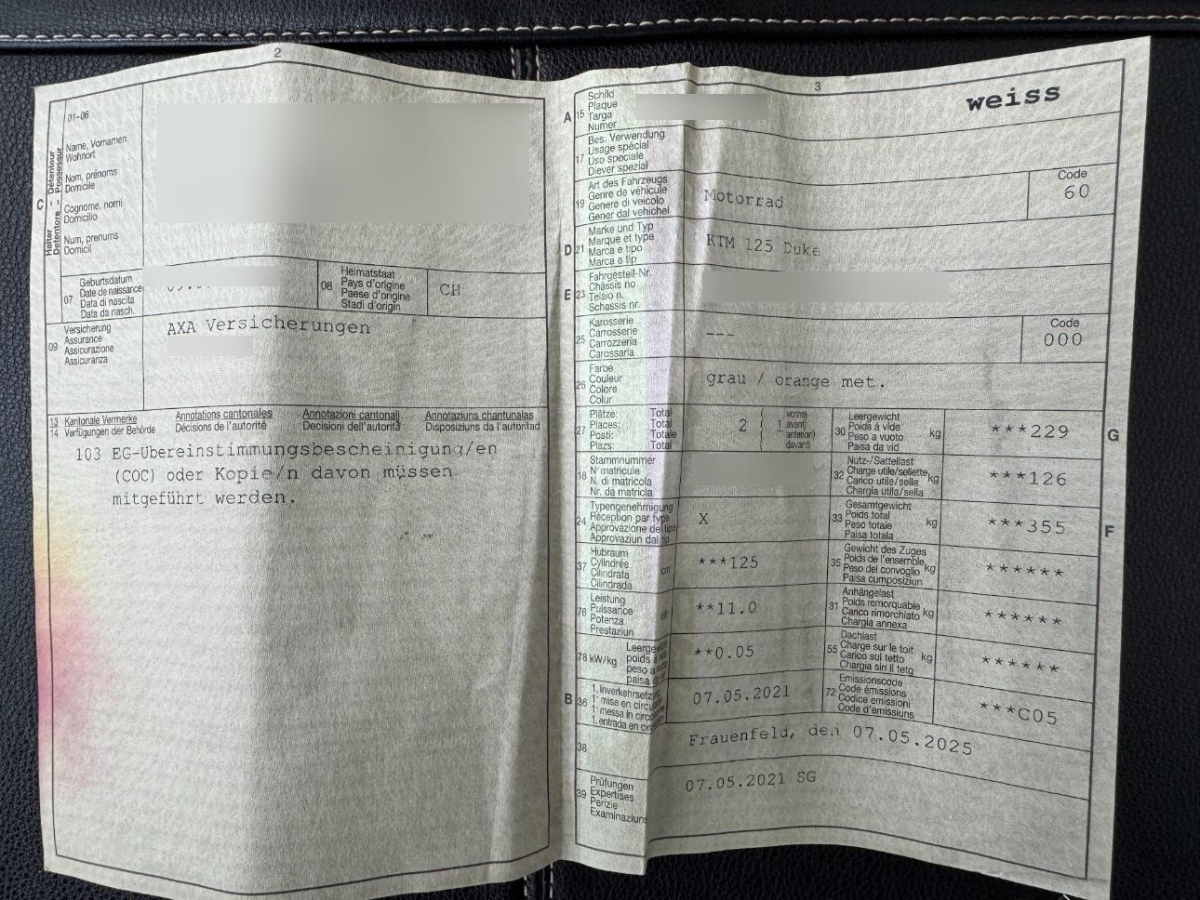 2
01-06
Halter - Détenteur
Detentore - Possessur
C
Name, Vornamen
Wohnort
Nom, prénoms
Domicile
Cognome, nomi
Domicilio
Num, prenums
Domicil
07
Geburtsdatum
Date de naissance
Data di nascita
Data da nasch.
08
Heimatstaat
Pays d'origine
Paese d'origine
Stadi d'origin
CH
09
Versicherung
Assurance
Assicurazione
Assicuranza
AXA Versicherungen
13 Kantonale Vermerke Annotations cantonales Annotazioni cantonali Annotaziuns chantunalas
14 Verfügungen der Behörde Décisions de l'autorité Decisioni dell'autorità Disposiziuns da l'autoritad
103 EG-Übereinstimmungsbescheinigung/en
(COC) oder Kopie/n davon müssen
mitgeführt werden.
3
weiss
A 15
Schild
Plaque
Targa
Numer
17
Bes. Verwendung
Usage spécial
Uso speciale
Diever spezial
19
Art des Fahrzeugs
Genre de véhicule
Genere di veicolo
Gener dal vehichel
Motorrad
Code
60
D 21
Marke und Typ
Marque et type
Marca e tipo
Marca e tip
KTM 125 Duke
E 23
Fahrgestell-Nr.
Châssis no
Telaio n.
Schassis nr.
25
Karosserie
Carrosserie
Carrozzeria
Carossaria
---
Code
000
26
Farbe
Couleur
Colore
Colur
grau / orange met.
27
Plätze: Total
Places: Total
Posti: Totale
Plazs: Total
2
1
vorne
avant
anteriori
davant
30
Leergewicht
Poids à vide
Peso a vuoto
Paisa da vid
kg
***229
G
18
Stammnummer
N° matricule
N. di matricola
Nr. da matricla
32
Nutz-/Sattellast
Charge utile/sellette
Carico utile/sella
Chargia utila/sella
kg
***126
24
Typengenehmigung
Réception par type
Approvazione del tipo
Approvaziun dal tip
X
33
Gesamtgewicht
Poids total
Peso totale
Paisa totala
kg
***355
F
37
Hubraum
Cylindrée
Cilindrata
Cilindrada
***125
35
Gewicht des Zuges
Poids de l'ensemble
Peso del convoglio
Paisa cumposiziun
kg
******
76
Leistung
Puissance
Potenza
Prestaziun
**11.0
31
Anhängelast
Poids remorquable
Carico rimorchiato
Chargia annexa
kg
******
78 kW/kg
**0.05
55
Dachlast
Charge sur le toit
Carico sul tetto
Chargia sin il tetg
kg
******
B 36
07.05.2021
72
Emissionscode
Code émissions
Codice emissioni
Code d'emissiuns
***C05
38
Frauenfeld, den 07.05.2025
39
Prüfungen
Expertises
Perizie
Examinaziuns
07.05.2021 SG